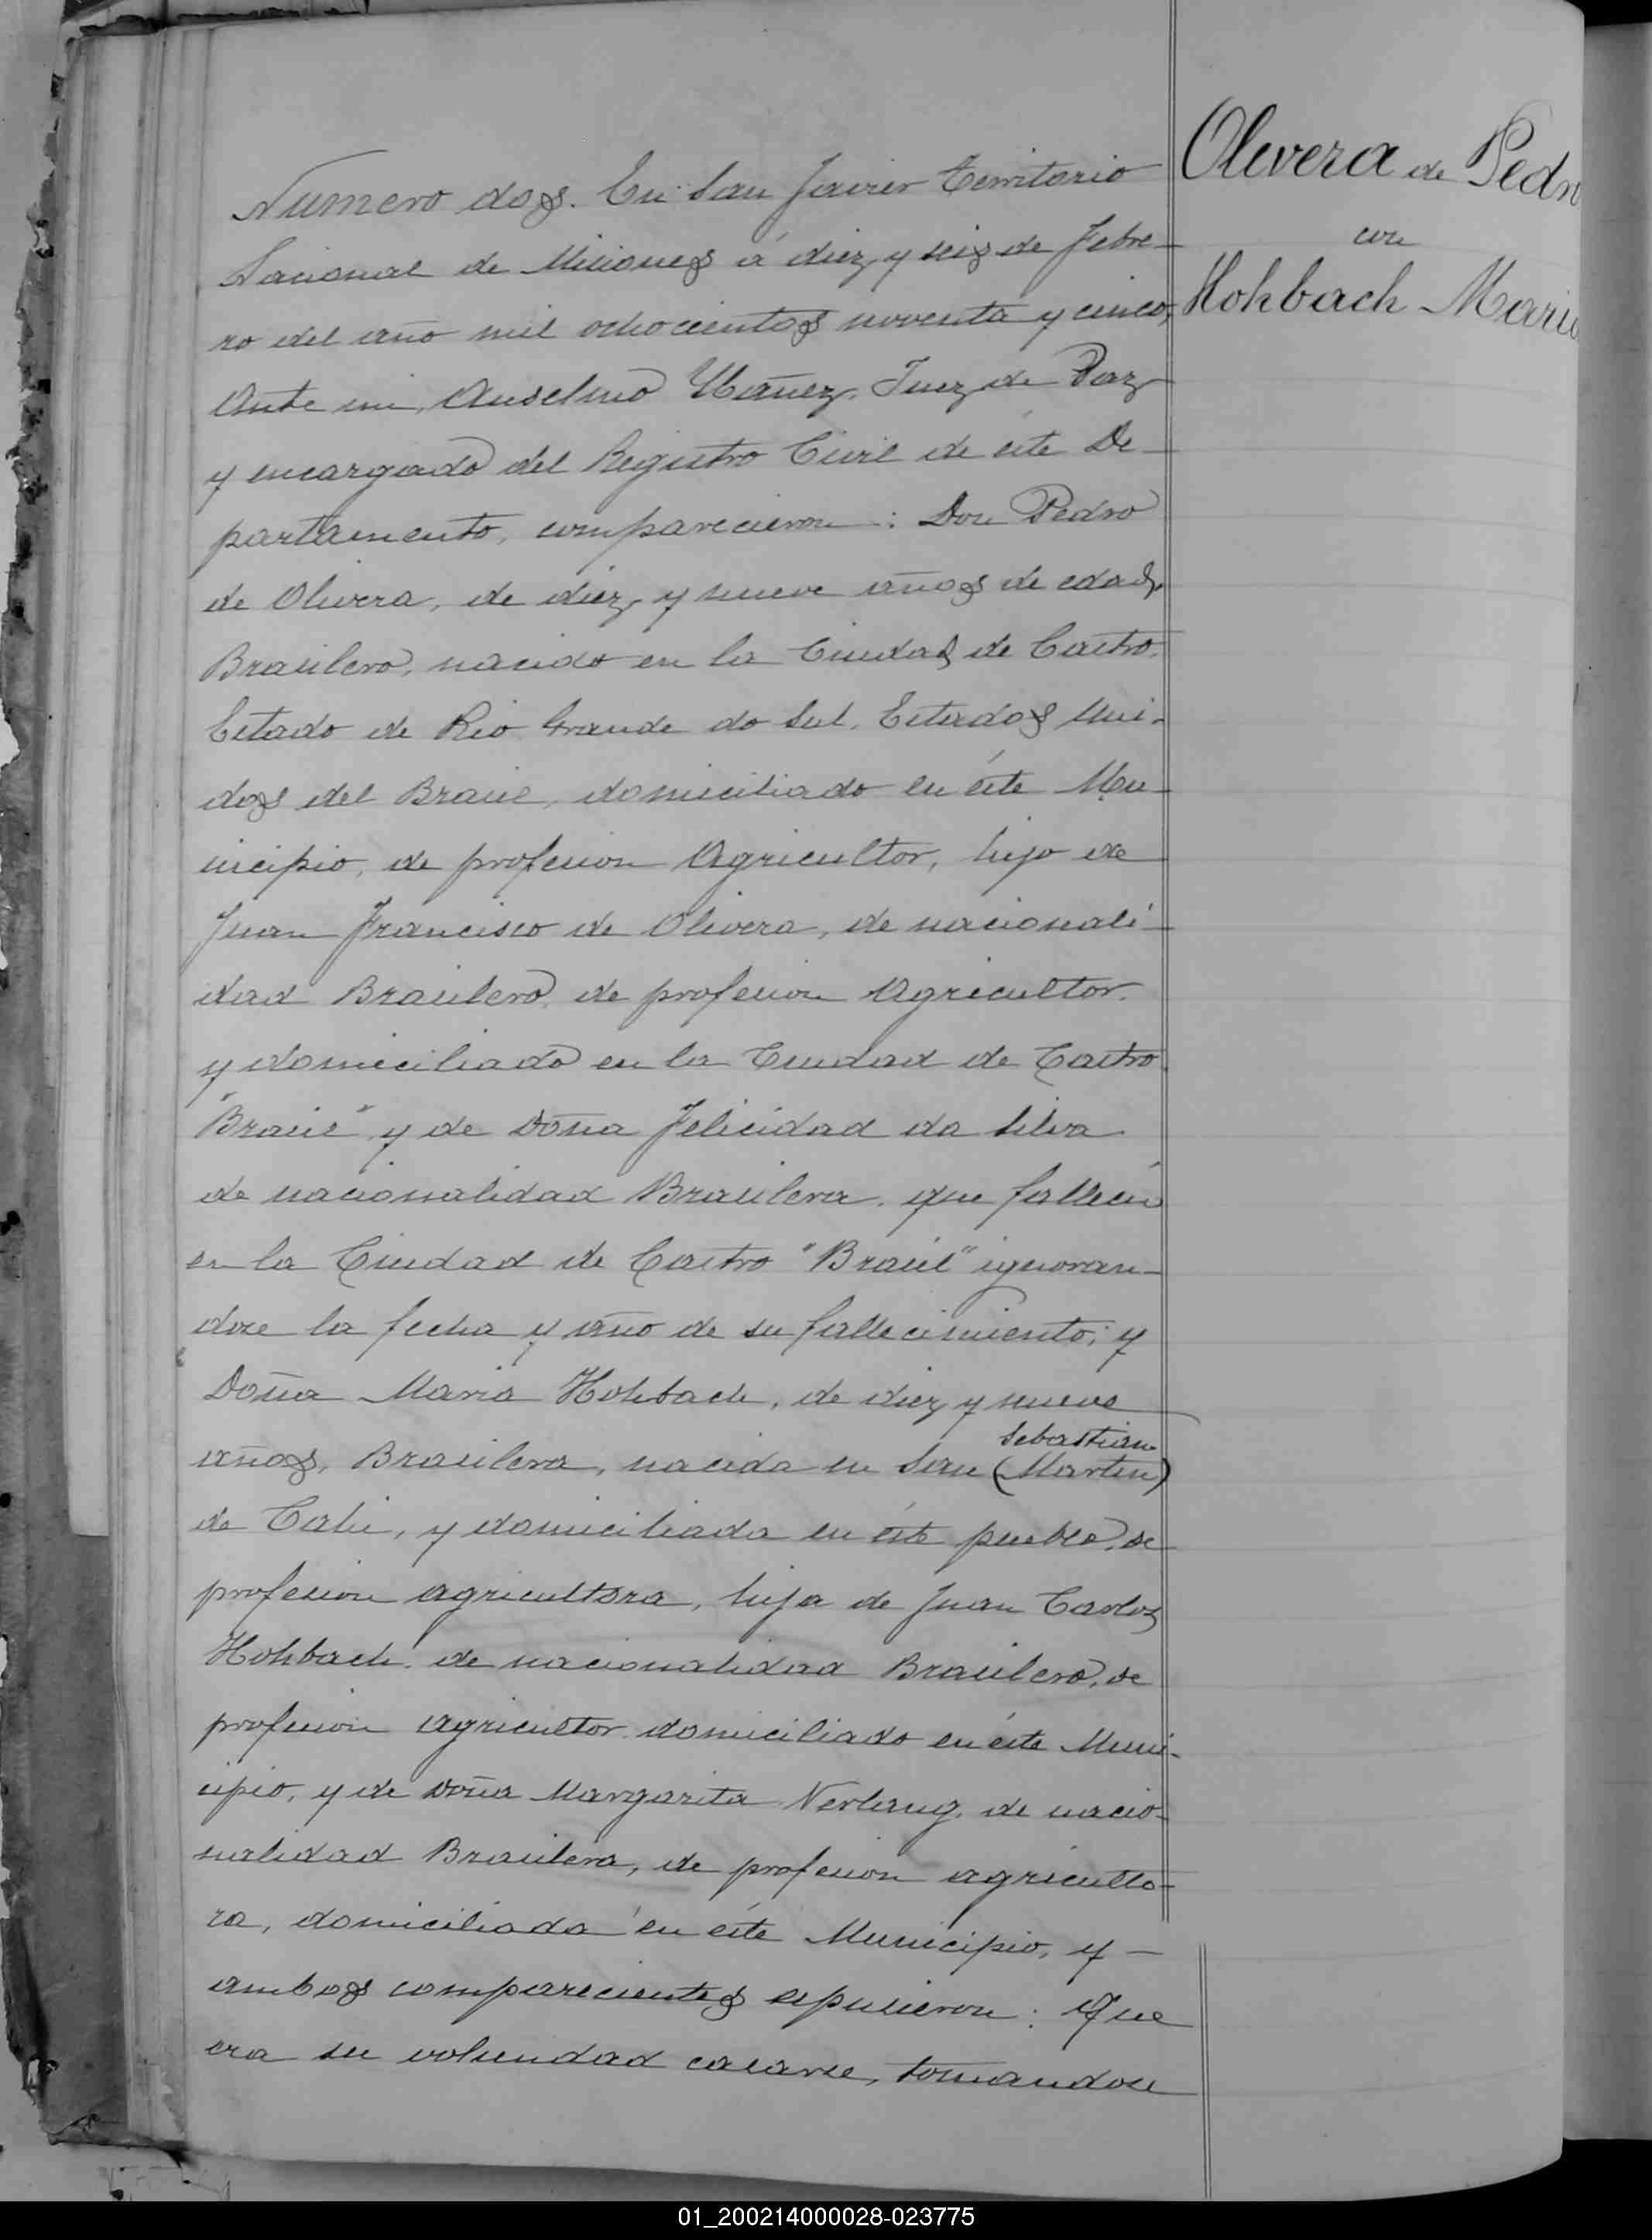 Olivera de Pedr
con
Hohbach Maria
Numero dos. En San Javier Territorio
Nacional de Misiones á diez y seis de Febre-
ro del año mil ochocientos noventa y cinco,
Ante mi, Anselmo Ybañez, Juez de Paz
y encargado del Registro Civil de éste De-
partamento, comparecieron: Don Pedro
de Olivera, de diez y nueve años de edad,
Brasilero, nacido en la Ciudad de Castro,
Estado de Rio Grande do Sul, Estados Uni-
dos del Brasil, domiciliado en éste Mu-
nicipio, de profesion Agricultor, hijo de
Juan Francisco de Olivera, de nacionali-
dad Brasilero, de profesion Agricultor,
y domiciliado en la Ciudad de Castro
"Brasil" y de Doña Felicidad da Silva
de nacionalidad Brasilera, que falleció
en la Ciudad de Castro "Brasil" ignoran-
dose la fecha y año de su fallecimiento; y
Doña Maria Hohbach, de diez y nueve
Sebastian
años, Brasilera, nacida en San (Martin)
de Cahi, y domiciliada en éste pueblo, de
profesion agricultora, hija de Juan Carlos
Hohbach, de nacionalidad Brasilero, de
profesion agricultor domiciliado en éste Muni-
cipio, y de Doña Margarita Nerlang, de nacio-
nalidad Brasilera, de profesion agriculto-
ra, domiciliada en éste Municipio, y -
ambos comparecientes espusieron: Que
era su volundad casarse, tomandose
01_200214000028-023775